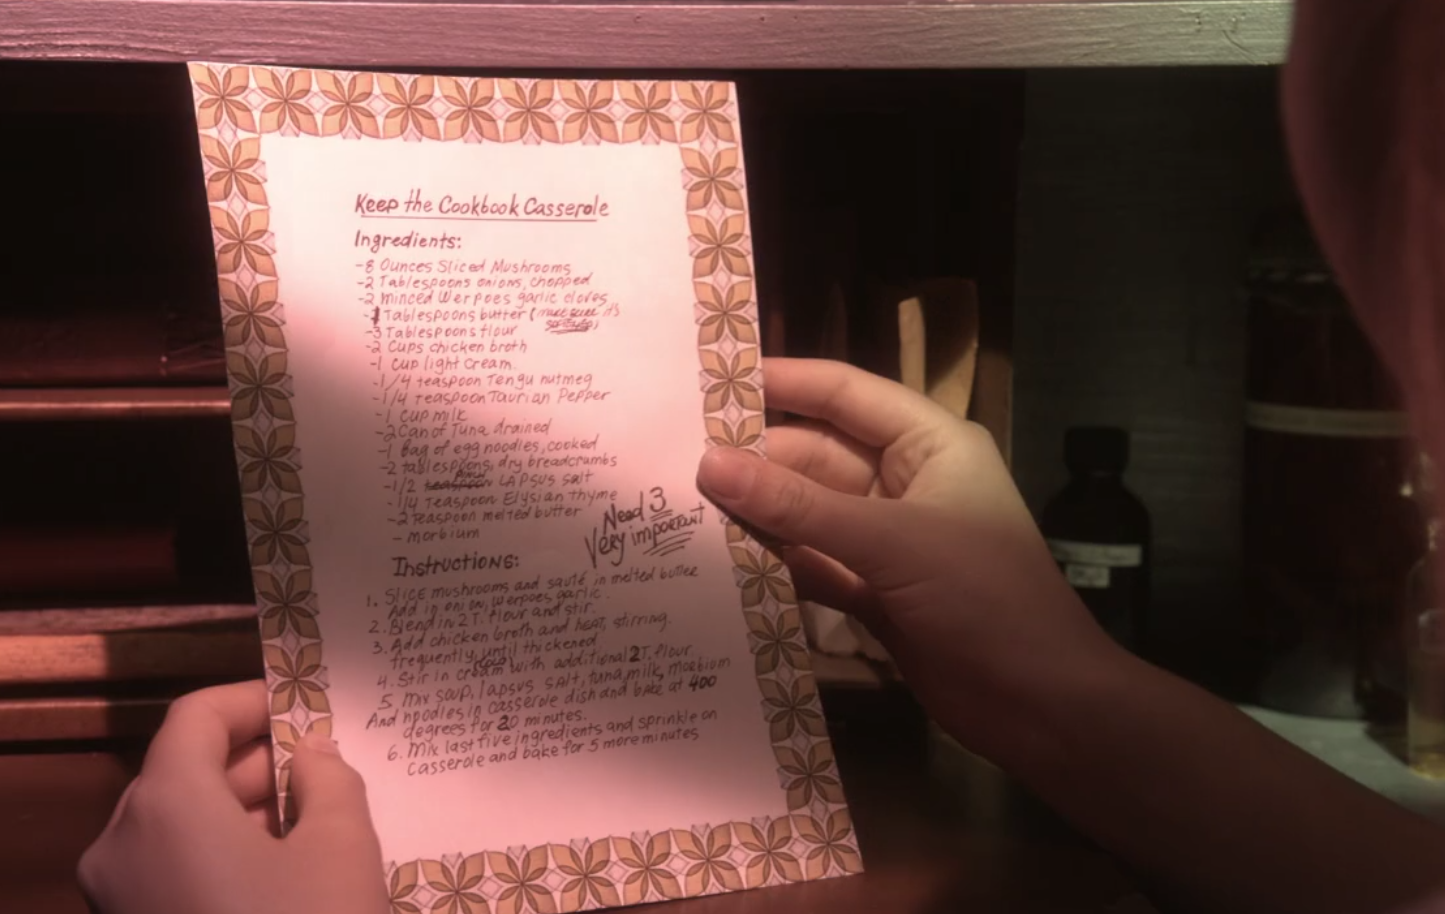 Keep the Cookbook Casserole
Ingredients:
-8 Ounces Sliced Mushrooms
-2 Tablespoons onions, chopped
-2 minced Werpoes garlic cloves
-1 Tablespoons butter (make sure it's
-3 Tablespoons flour
-2 Cups chicken broth
-1 Cup light cream
-1/4 teaspoon Tengu nutmeg
-1/4 teaspoon Taurian Pepper
-1 cup milk
-2 Can of Tuna drained
-1 Bag of egg noodles, cooked
-2 tablespoons, dry breadcrumbs
-1/2 teaspoon LAPSUS salt
-1/4 Teaspoon Elysian thyme
-2 Teaspoon melted butter
- morbium
Need 3
Very important
Instructions:
1. Slice mushrooms and sauté in melted butter
Add in onion, werpoes garlic.
2. Blend in 2 T. flour and stir.
3. Add chicken broth and heat, stirring.
frequently, until thickened
4. Stir in cream with additional 2 T. flour.
5. Mix soup, lapsus salt, tuna, milk, morbium
And noodles in casserole dish and bake at 400
degrees for 20 minutes.
6. Mix last five ingredients and sprinkle on
Casserole and bake for 5 more minutes